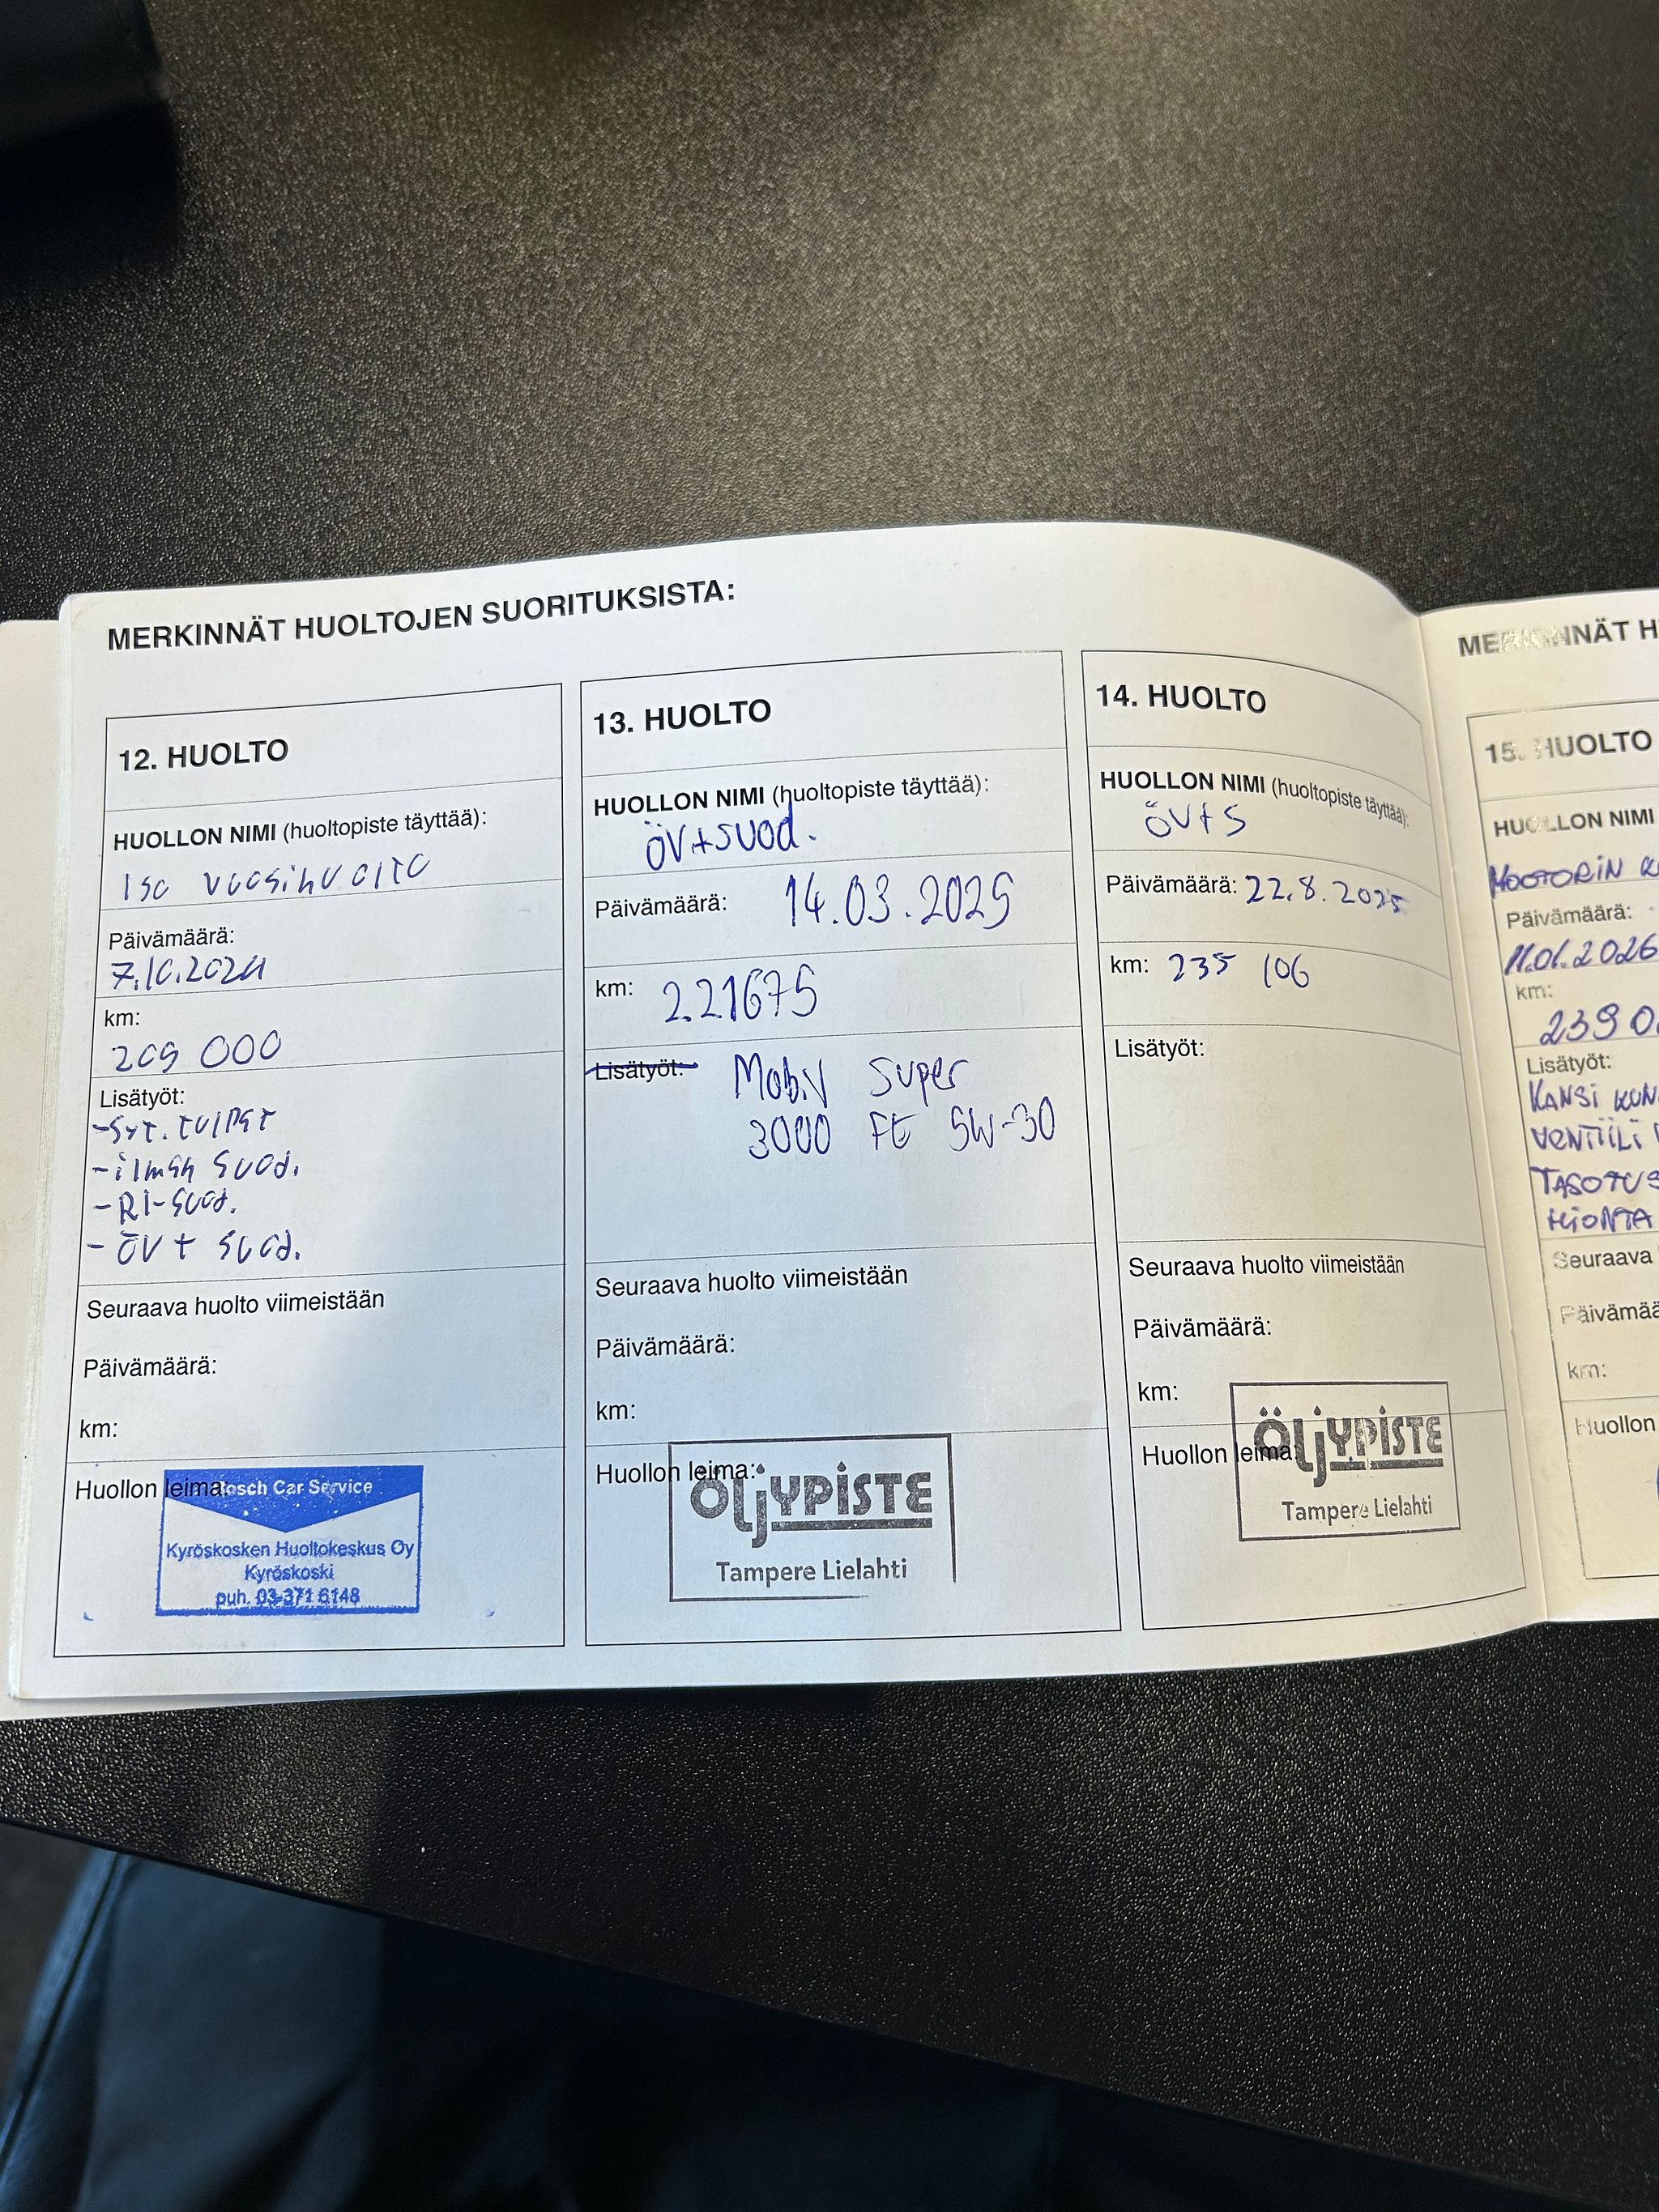 MERKINNÄT HUOLTOJEN SUORITUKSISTA:
12. HUOLTO
HUOLLON NIMI (huoltopiste täyttää):
Iso vuosihuolto
Päivämäärä:
7.10.2024
km:
209 000
Lisätyöt:
-Syt. tulpat
-ilman suod.
-RI-suod.
- ÖV + suod.
Seuraava huolto viimeistään
Päivämäärä:
km:
Huollon leima:
Bosch Car Service
Kyröskosken Huoltokeskus Oy
Kyröskoski
puh. 03-371 6148
13. HUOLTO
HUOLLON NIMI (huoltopiste täyttää):
ÖV+suod.
Päivämäärä: 14.03.2025
km: 221675
Lisätyöt: Mobil Super
3000 FE 5W-30
Seuraava huolto viimeistään
Päivämäärä:
km:
Huollon leima:
ÖLJYPISTE
Tampere Lielahti
14. HUOLTO
HUOLLON NIMI (huoltopiste täyttää):
ÖV+S
Päivämäärä: 22.8.2025
km: 235 106
Lisätyöt:
Seuraava huolto viimeistään
Päivämäärä:
km:
Huollon leima:
ÖLJYPISTE
Tampere Lielahti
MERKINNÄT H
15. HUOLTO
HUOLLON NIMI
MOOTORIN
Päivämäärä:
11.01.2026
km:
239 0
Lisätyöt:
KANSI KUN
VENTTIILI
TASOTUS
HIONTA
Seuraava
Päivämää
km:
Huollon